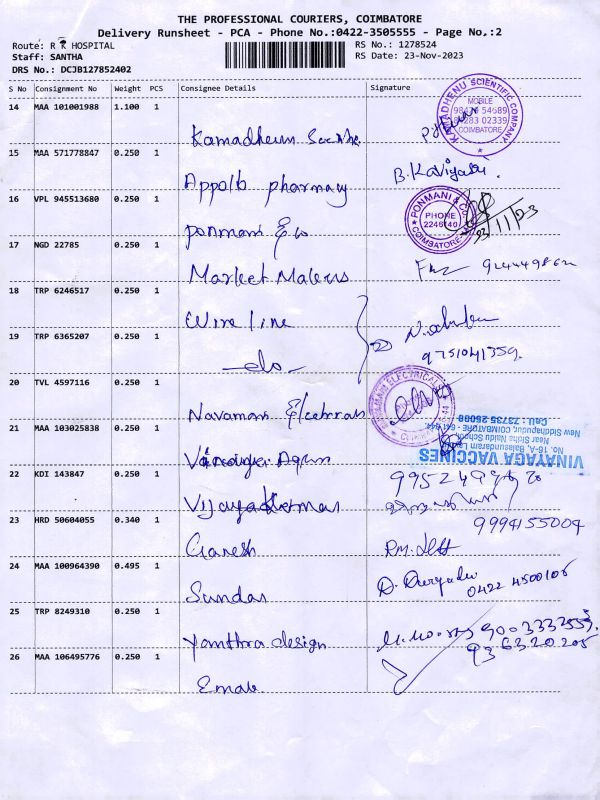 THE PROFESSIONAL COURIERS, COIMBATORE
Delivery Runsheet - PCA - Phone No.:0422-3505555 - Page No.:2
Route: R R HOSPITAL
Staff: SANTHA
DRS No.: DCJB127852402
RS No.: 1278524
RS Date: 23-Nov-2023
S No Consignment No Weight PCS Consignee Details Signature
14 MAA 101001988 1.100 1
KAMADHENU SCIENTIFIC COMPANY
MOBILE
COIMBATORE
Kamadhenu
15 MAA 571778847 0.250 1
Appolo pharmacy B. Kaviyalu.
16 VPL 945513680 0.250 1
PONMANI & CO
PHONE
2246140
COIMBATORE
23/11/23
ponmani & co
17 NGD 22785 0.250 1
Market Makers
18 TRP 6246517 0.250 1
Wire line
19 TRP 6365207 0.250 1
9751041359.
-do-
20 TVL 4597116 0.250 1
Navamani Electricals
21 MAA 103025838 0.250 1
VINAYAGA VACCINES
No.16-A, Balasundaram Layout
Near Sidha Naidu School
New Siddhapudur, COIMBATORE - 641 044
Cell: 73735 25000
22 KDI 143847 0.250 1
Vijaya
23 HRD 50604055 0.340 1
9994155004
Ganesh
24 MAA 100964390 0.495 1
Sundar 0422 4500106
25 TRP 8249310 0.250 1
Yanthra design 9003332559
936320205
26 MAA 106495776 0.250 1
Emab